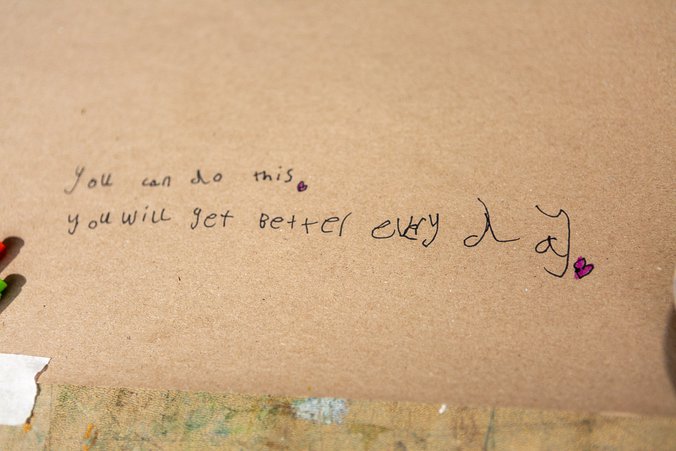 you can do this
you will get Better every day